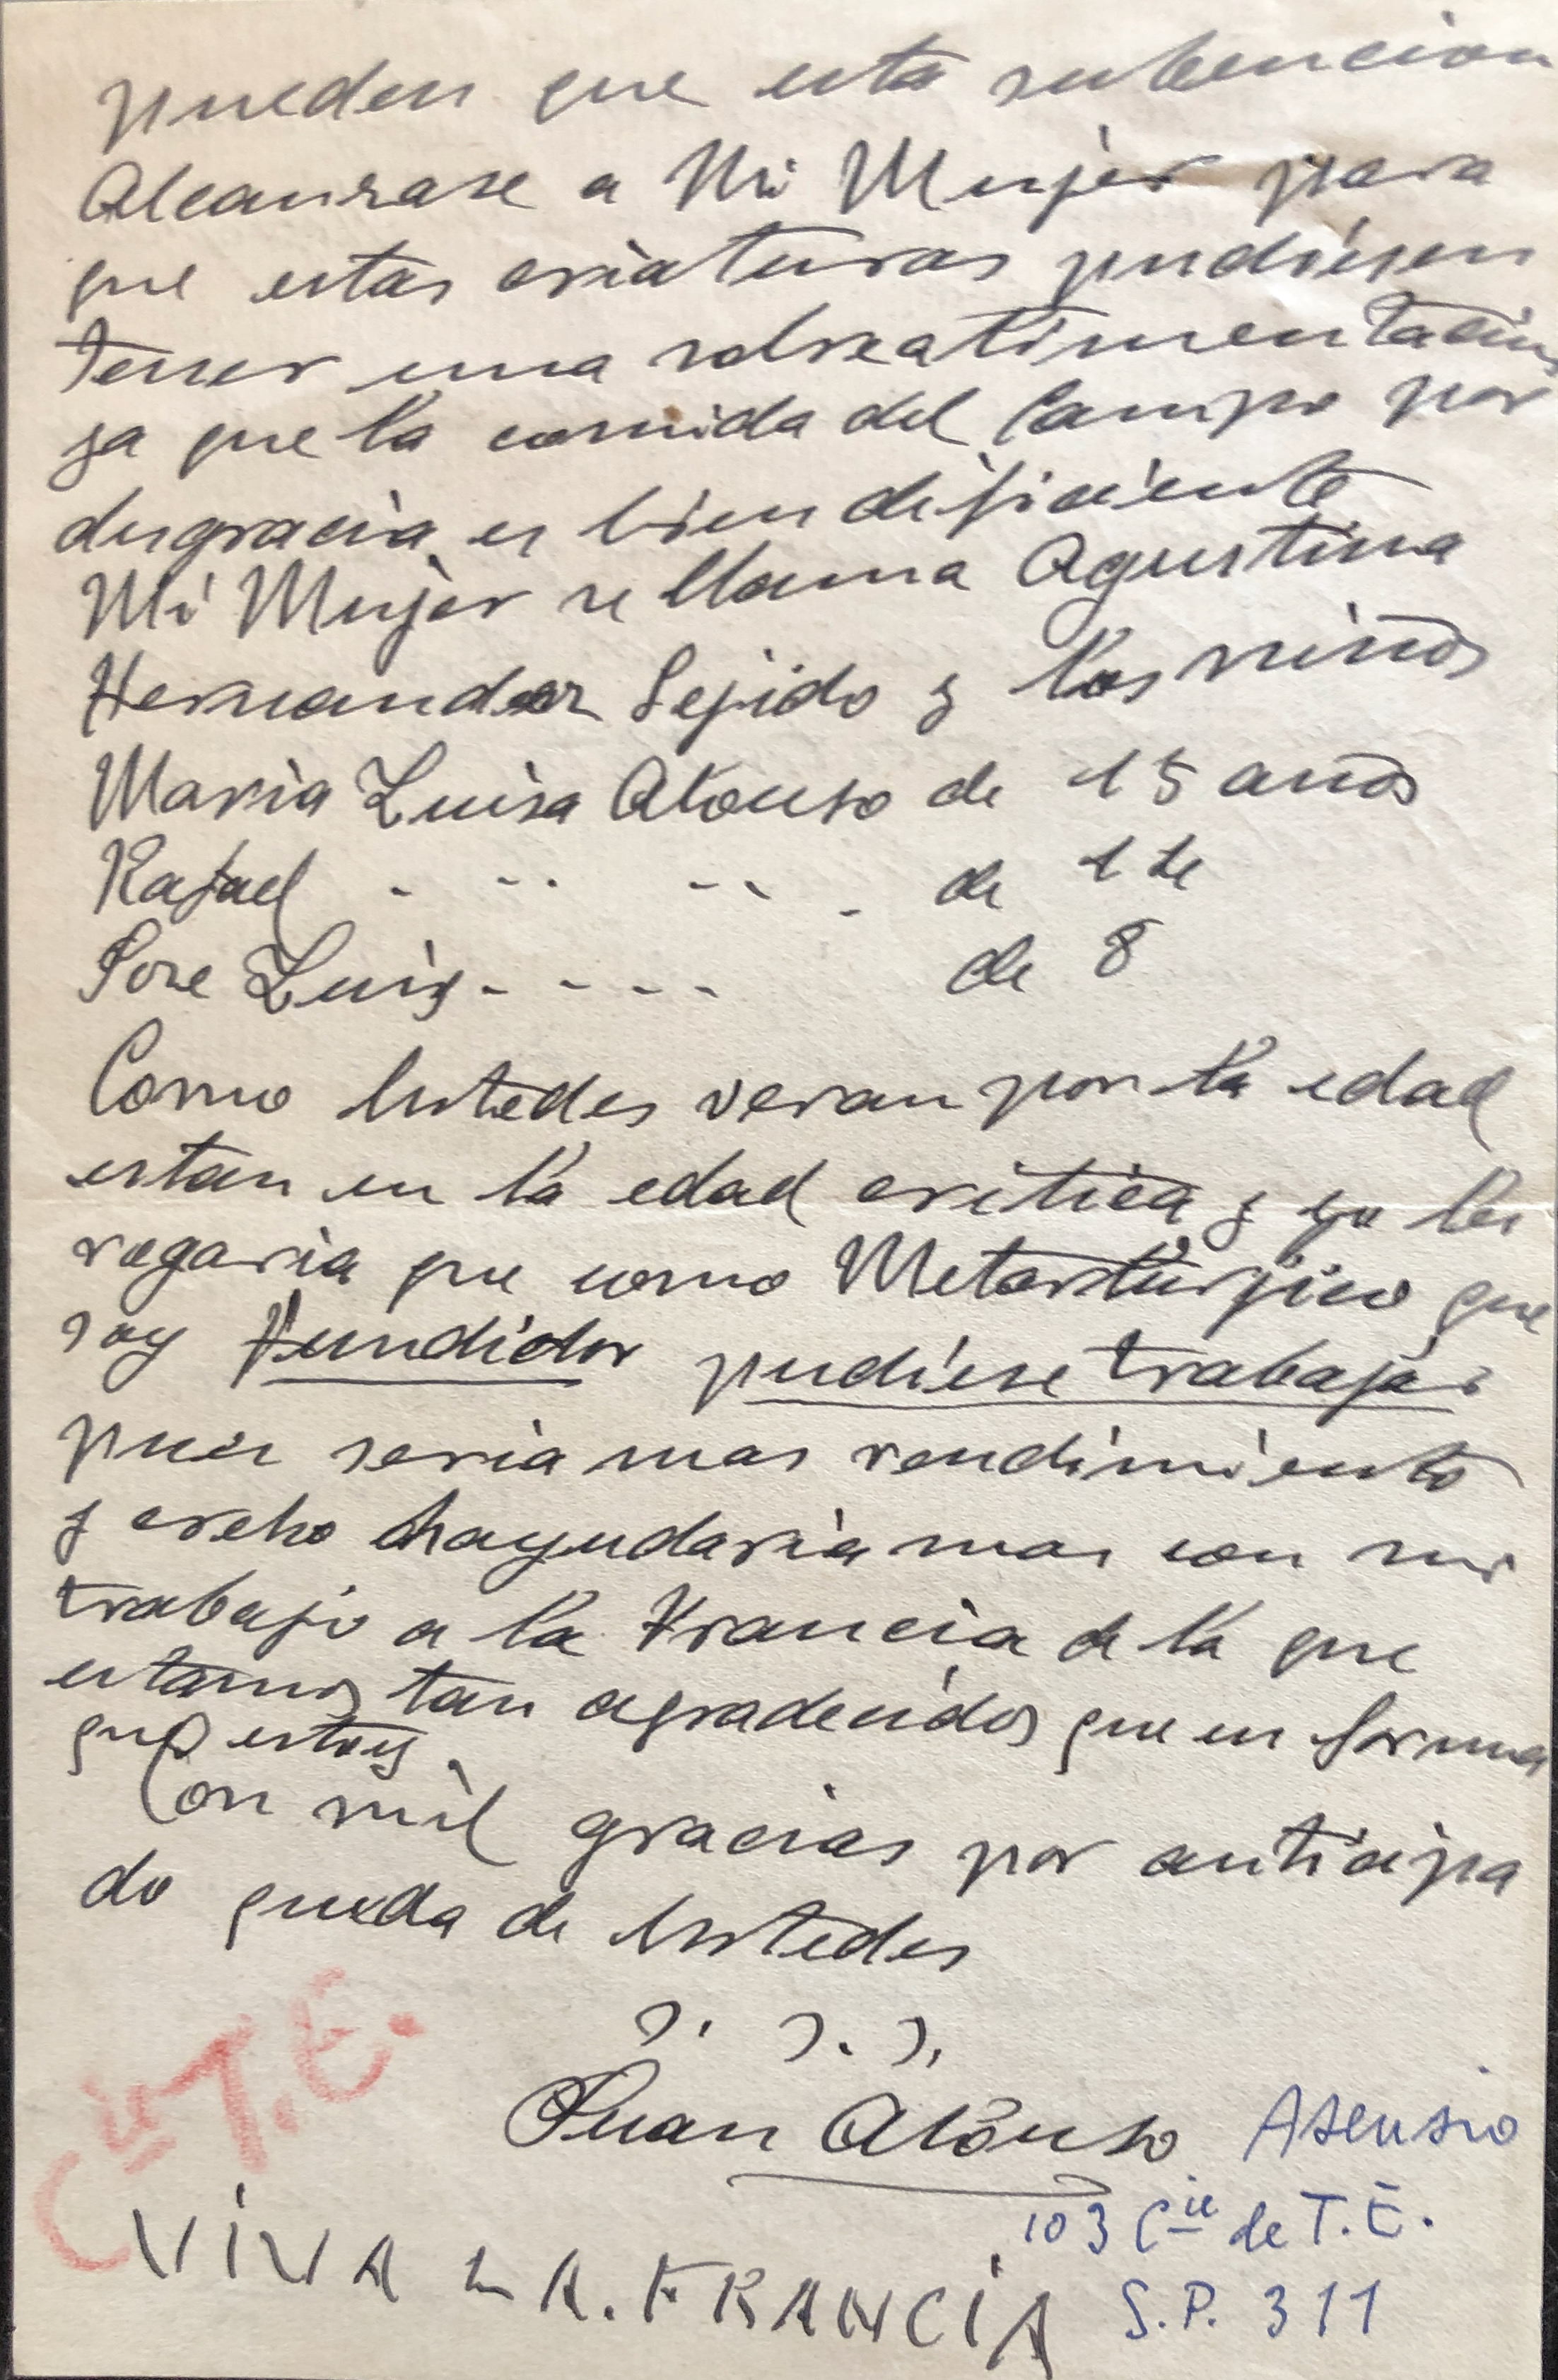 pueden que esta subencion
Alcanzase a Mi Mujer para
que estas criaturas pudiesen
tener una sobreatimentacion
ya que la comida del Campo por
desgracia es bien deficiente
Mi Mujer se llama Agustina
Hernandez Sejido y los niños
Maria Luisa Alonso de 15 años
Rafael - - - - - - de 12
Jose Luis - - - - de 8
Como Ustedes veran por la edad
estan en la edad critica y yo les
rogaria que como Metarlurjico que
soy Fundidor pudiese trabajar
pues seria mas rendimiento
y creho hayudaria mas con mi
trabajo a la Francia de la que
estamos tan agradecidos que en forma
que estoy.
Con mil gracias por anticipa
do queda de Ustedes
s. s. s.
Juan Alonso Asensio
103 Cie de T.E.
S.P. 311
Cie T.E.
VIVA LA. FRANCIA